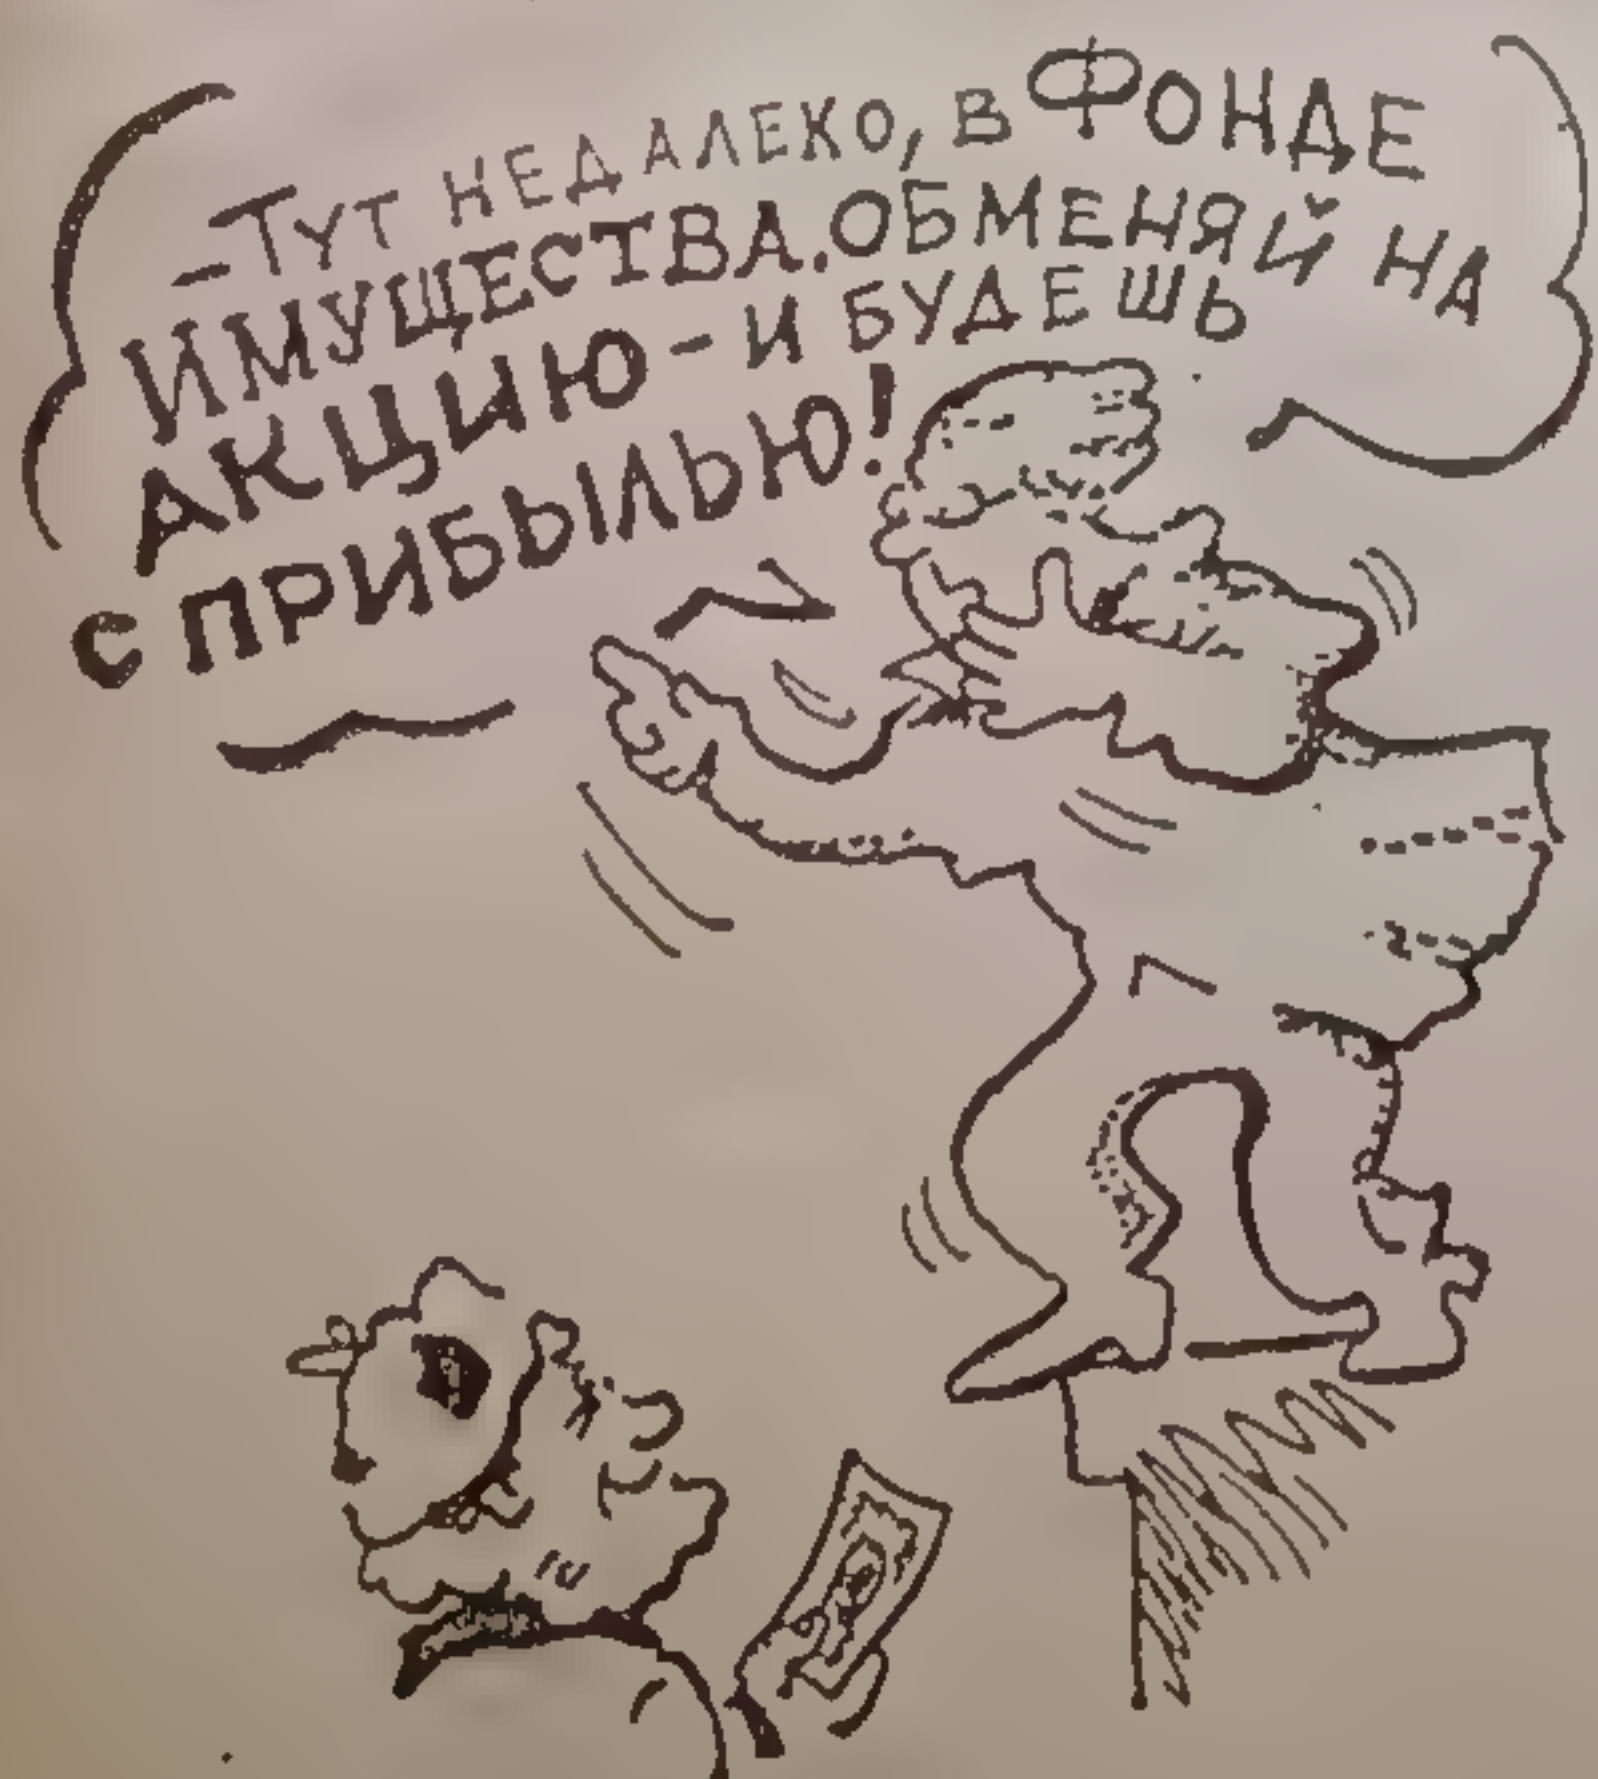 –Тут НЕДАЛЕКО, В ФОНДЕ
ИМУЩЕСТВА. ОБМЕНЯЙ НА
АКЦИЮ – И БУДЕШЬ
С ПРИБЫЛЬЮ!